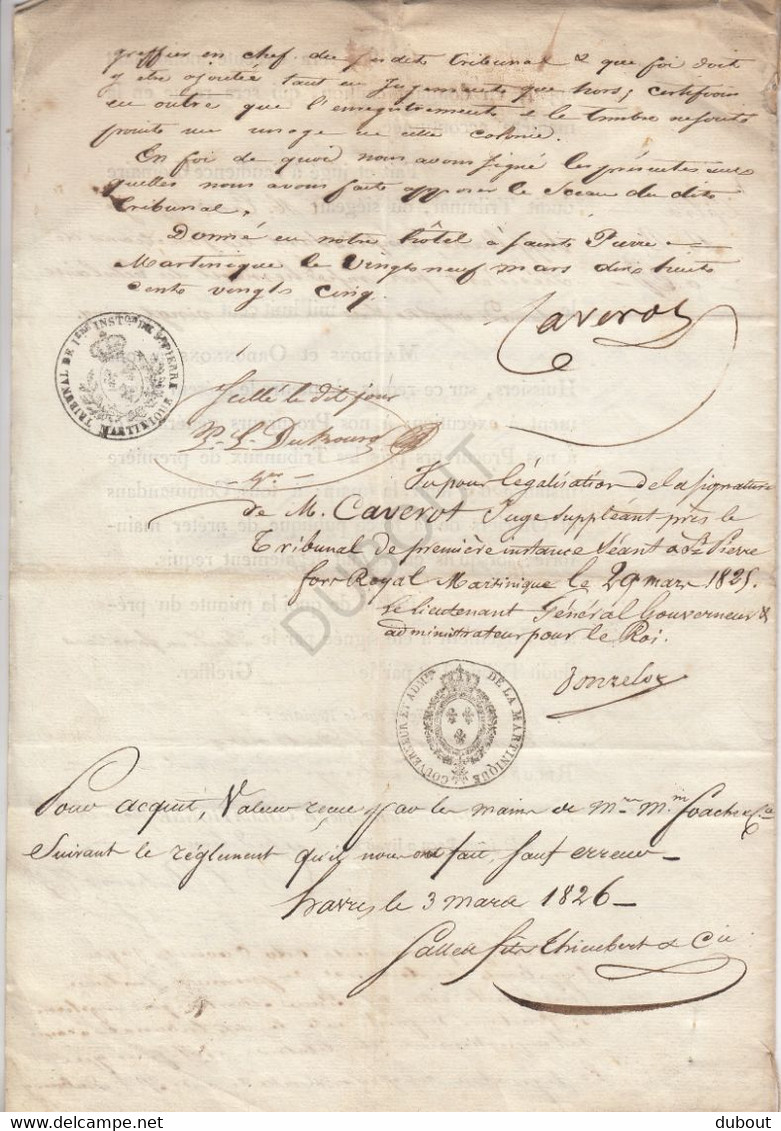 greffier en chef du susdit tribunal & que foi doit
y être ajoutée tant en Jugements que hors; certifions
en outre que l'enregistrement & le timbre ne sont
points en usage en cette colonie.
En foi de quoi nous avons signé les présentes aux
quelles nous avons faits apposer le sceau du dit
tribunal.
Donné en notre hôtel à Saint Pierre
Martinique le vingt neuf mars dix huit
cents vingt cinq.
Caverot
TRIBUNAL DE 1ERE INSTON DE ST PIERRE
MARTINIQUE
Scellé le dit jour
P. L. Dubourg
Vu pour légalisation de la signature
de M. Caverot Juge Suppléant près le
Tribunal de première instance Séant à St Pierre
fort Royal Martinique le 29 mars 1825.
Le Lieutenant Général Gouverneur &
administrateur pour le Roi.
Donzelot
GOUVERNEUR ET ADMR DE LA MARTINIQUE
Pour acquit, Valeur reçue par les mains de
Suivant le réglement qu'il nous ont fait, sauf erreur
havre, le 3 mars 1826
fils Thieubert & Cie
DUBOUT
delcampe.net
dubout